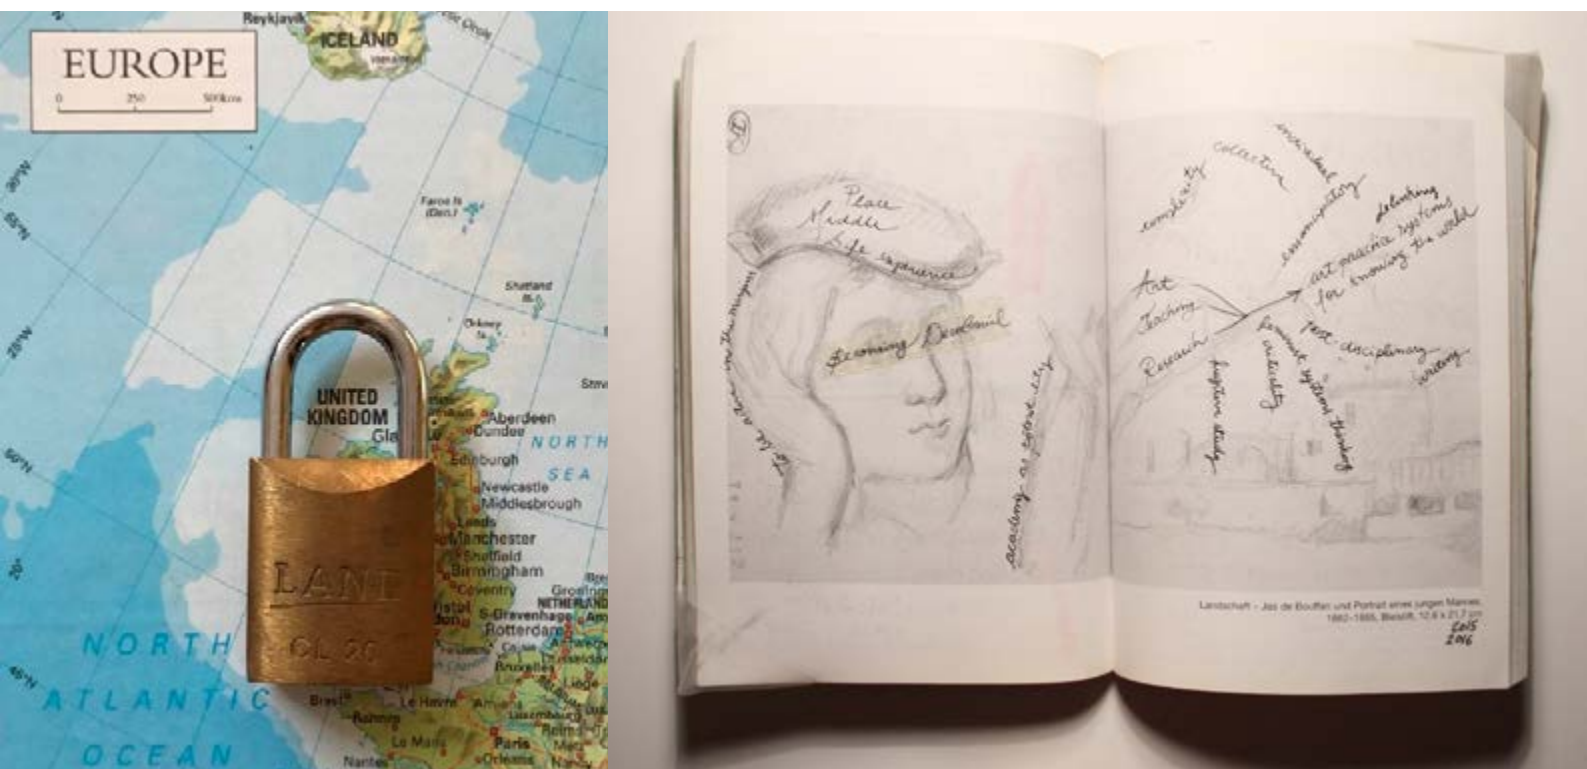 Reykjavik
ICELAND
EUROPE
0 250 500kms
Faroe Is
(Den.)
Shetland
Is.
Orkney
Is.
UNITED
KINGDOM
Aberdeen
Dundee
NORTH
SEA
Edinburgh
Newcastle
Middlesbrough
Leeds
Manchester
Sheffield
Birmingham
Coventry
NETHERLAND
S-Gravenhage
Rotterdam
Bruxelles
Liège
Luxembourg
Brest
Le Havre
Rennes
Le Mans
Paris
Orleans
Nantes
Nancy
NORTH
ATLANTIC
OCEAN
LANE
CL 20
Place
Middle
Life experience
Becoming Decolonial
academy as external ity
complexity
collective
individual
emancipatory
delinking
art practice systems
for knowing the world
Art
Teaching
Research
post-disciplinary
writing
feminist systems thinking
criticality
fugitive study
Landschaft – Jas de Bouffan und Portrait eines jungen Mannes,
1882–1885, Bleistift, 12,6 x 21,7 cm
2015
2016